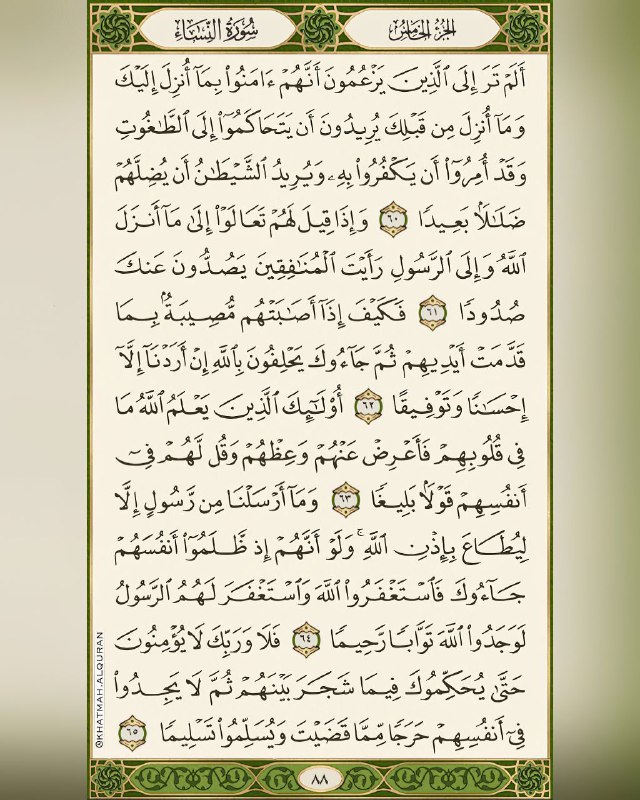 الجزء الخامس
سورة النساء
أَلَمْ تَرَ إِلَى ٱلَّذِينَ يَزْعُمُونَ أَنَّهُمْ ءَامَنُوا۟ بِمَآ أُنزِلَ إِلَيْكَ
وَمَآ أُنزِلَ مِن قَبْلِكَ يُرِيدُونَ أَن يَتَحَاكَمُوٓا۟ إِلَى ٱلطَّٰغُوتِ
وَقَدْ أُمِرُوٓا۟ أَن يَكْفُرُوا۟ بِهِۦ وَيُرِيدُ ٱلشَّيْطَٰنُ أَن يُضِلَّهُمْ
ضَلَٰلًۢا بَعِيدًا ٦٠ وَإِذَا قِيلَ لَهُمْ تَعَالَوْا۟ إِلَىٰ مَآ أَنزَلَ
ٱللَّهُ وَإِلَى ٱلرَّسُولِ رَأَيْتَ ٱلْمُنَٰفِقِينَ يَصُدُّونَ عَنكَ
صُدُودًا ٦١ فَكَيْفَ إِذَآ أَصَٰبَتْهُم مُّصِيبَةٌۢ بِمَا
قَدَّمَتْ أَيْدِيهِمْ ثُمَّ جَآءُوكَ يَحْلِفُونَ بِٱللَّهِ إِنْ أَرَدْنَآ إِلَّآ
إِحْسَٰنًا وَتَوْفِيقًا ٦٢ أُو۟لَٰٓئِكَ ٱلَّذِينَ يَعْلَمُ ٱللَّهُ مَا
فِى قُلُوبِهِمْ فَأَعْرِضْ عَنْهُمْ وَعِظْهُمْ وَقُل لَّهُمْ فِىٓ
أَنفُسِهِمْ قَوْلًۢا بَلِيغًا ٦٣ وَمَآ أَرْسَلْنَا مِن رَّسُولٍ إِلَّا
لِيُطَاعَ بِإِذْنِ ٱللَّهِ ۚ وَلَوْ أَنَّهُمْ إِذ ظَّلَمُوٓا۟ أَنفُسَهُمْ
جَآءُوكَ فَٱسْتَغْفَرُوا۟ ٱللَّهَ وَٱسْتَغْفَرَ لَهُمُ ٱلرَّسُولُ
لَوَجَدُوا۟ ٱللَّهَ تَوَّابًا رَّحِيمًا ٦٤ فَلَا وَرَبِّكَ لَا يُؤْمِنُونَ
حَتَّىٰ يُحَكِّمُوكَ فِيمَا شَجَرَ بَيْنَهُمْ ثُمَّ لَا يَجِدُوا۟
فِىٓ أَنفُسِهِمْ حَرَجًا مِّمَّا قَضَيْتَ وَيُسَلِّمُوا۟ تَسْلِيمًا ٦٥
٨٨
@KHATMAH.ALQURAN